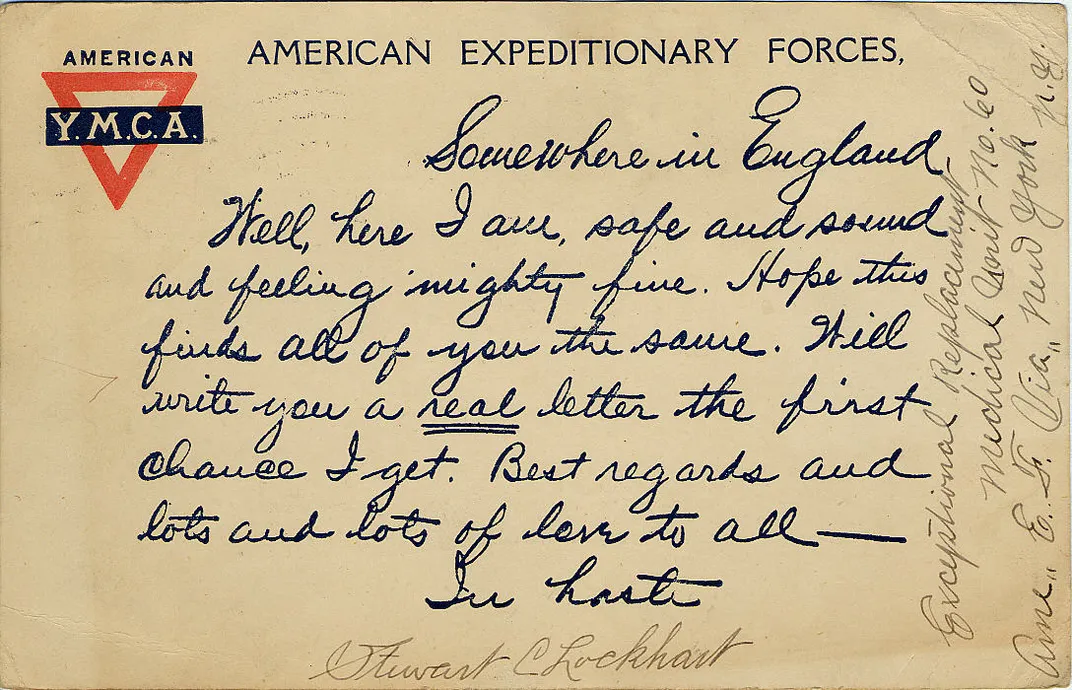 AMERICAN
Y.M.C.A.
AMERICAN EXPEDITIONARY FORCES,
Somewhere in England,
Well, here I am, safe and sound
and feeling mighty fine. Hope this
finds all of you the same. Will
write you a real letter the first
chance I get. Best regards and
lots and lots of love to all—
In haste
Stewart C Lockhart
Exceptional Replacement
Medical Unit No. 60
Ame,, E. F. Via,, New York N.Y.